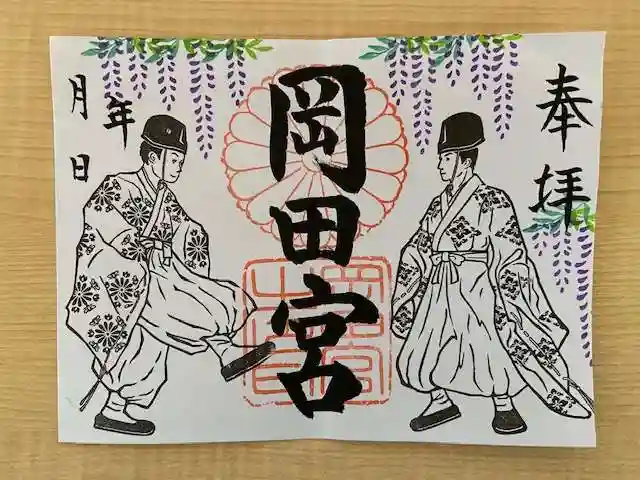 奉拝
岡田宮
年
月日